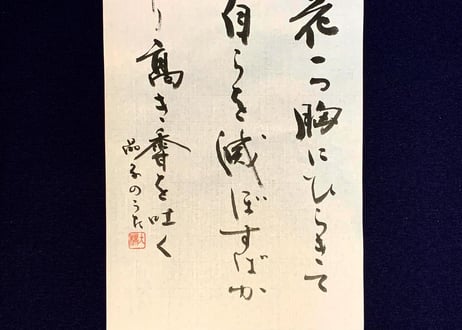 花一つ胸にひらきて
自らを滅ぼすばか
り高き香を吐く
晶子のうた